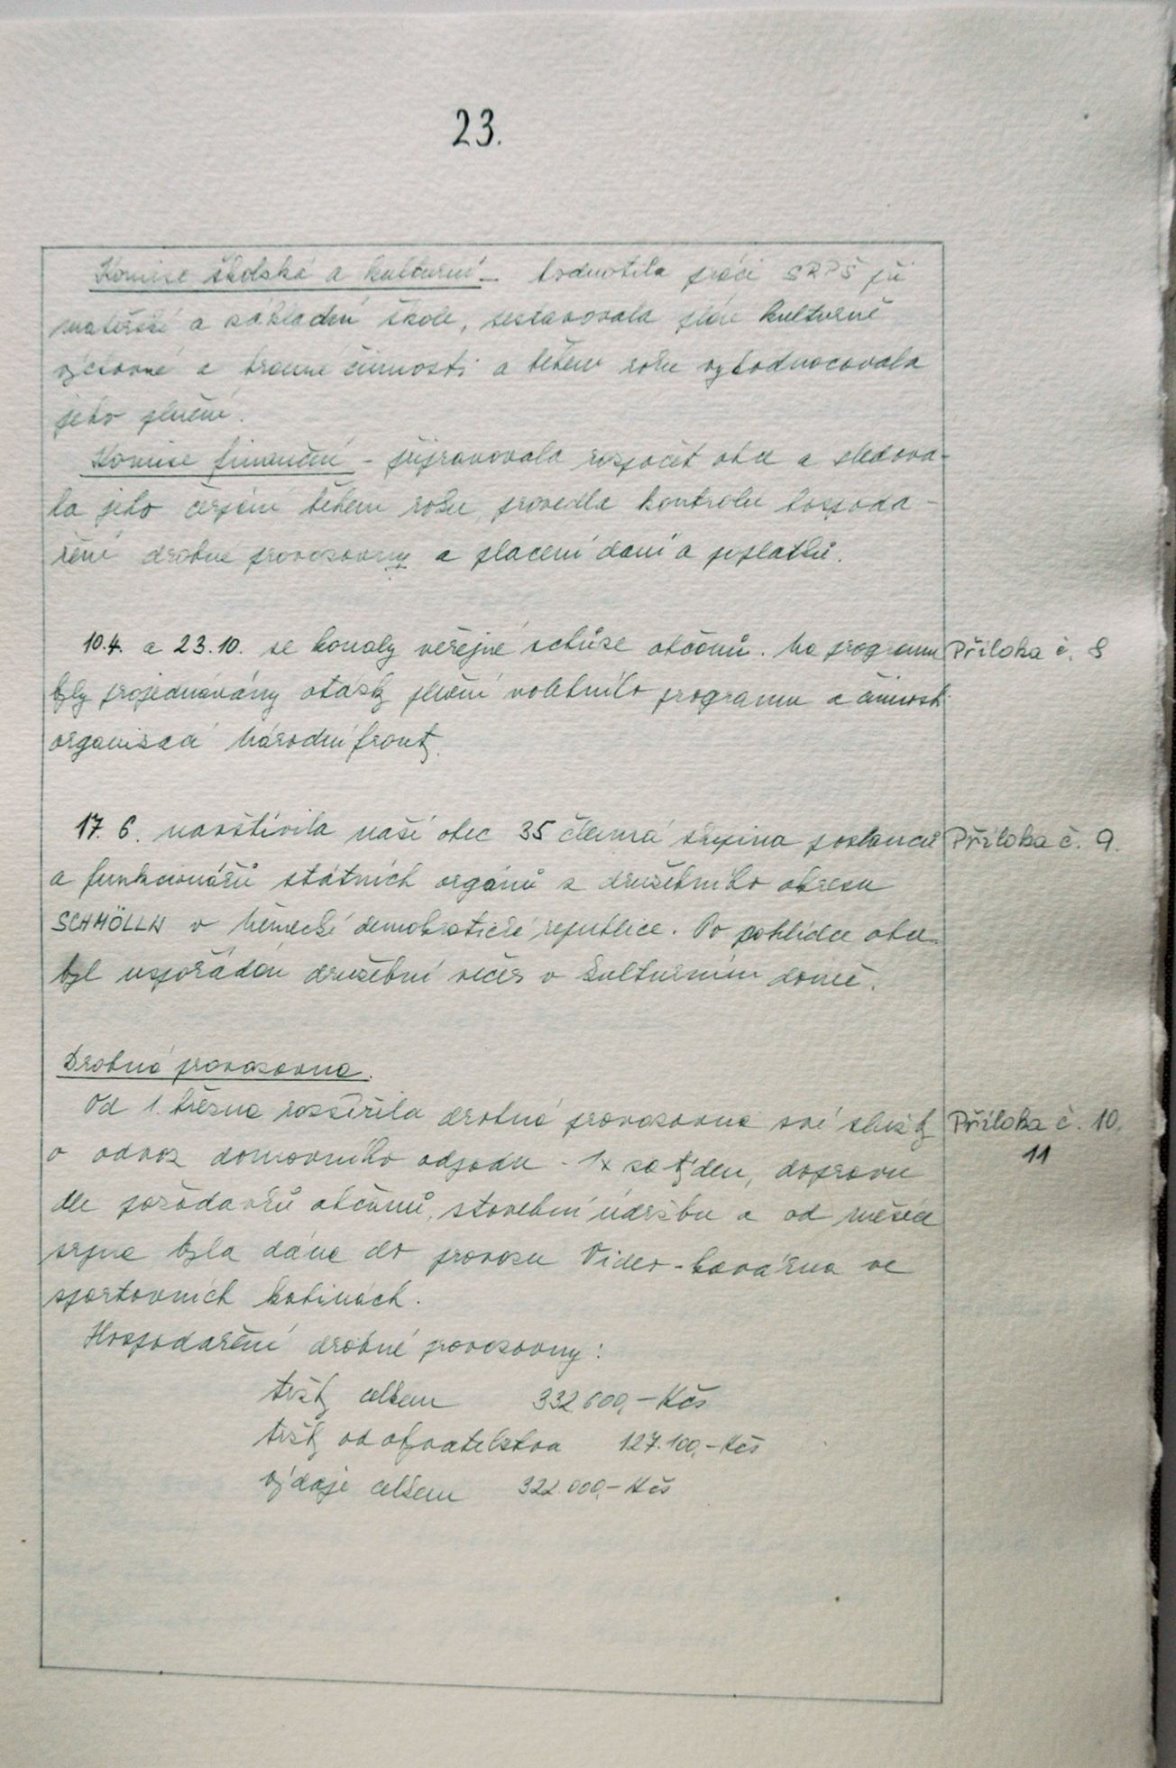 23.
Komise školská a kulturní - hodnotila práci SRPŠ při
mateřské a základní škole, sestavovala plán kulturně
výchovné a branné činnosti a během roku vyhodnocovala
jeho plnění.
Komise finanční - připravovala rozpočet obce a sledova-
la jeho čerpání během roku, provedla kontrolu hospoda-
ření drobné provozovny a placení daní a poplatků.
10.4. a 23.10. se konaly veřejné schůze občanů. Na programu
Příloha č. 8
byly projednávány otázky plnění volebního programu a činnosti
organizací Národní fronty.
17. 6. navštívila naší obec 35 členná skupina poslanců
Příloha č. 9.
a funkcionářů státních orgánů z družebního okresu
SCHMÖLLN v Německé demokratické republice. Po pohlídce obce
byl uspořádán družební večer v kulturním domě.
Drobná provozovna.
Od 1. března rozšířila drobná provozovna své služby
Příloha č. 10.
11
o odvoz domovního odpadu - 1x za týden, dopravu
dle požadavků občanů, stavební údržbu a od měsíce
srpna byla dána do provozu Video-kavárna ve
sportovních kabinách.
Hospodaření drobné provozovny:
tržby celkem 332 600,- Kčs
tržby od obyvatelstva 127.100,- Kčs
výdaje celkem 322 000,- Kčs